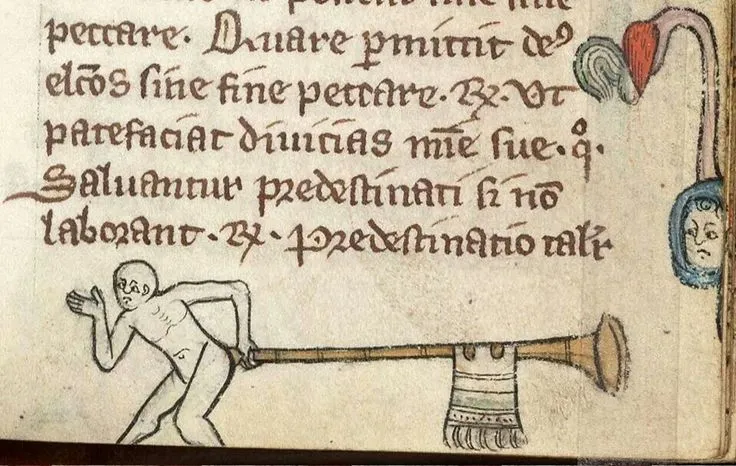 sine fine
peccare. Quare ꝑmittit deꝰ
elc̄os sine fine peccare. ℞. Vt
patefaciat diuicias mīe sue. qͦ.
Saluantur predestinati si nō
laborant. ℞. Predestinatio talit᷑